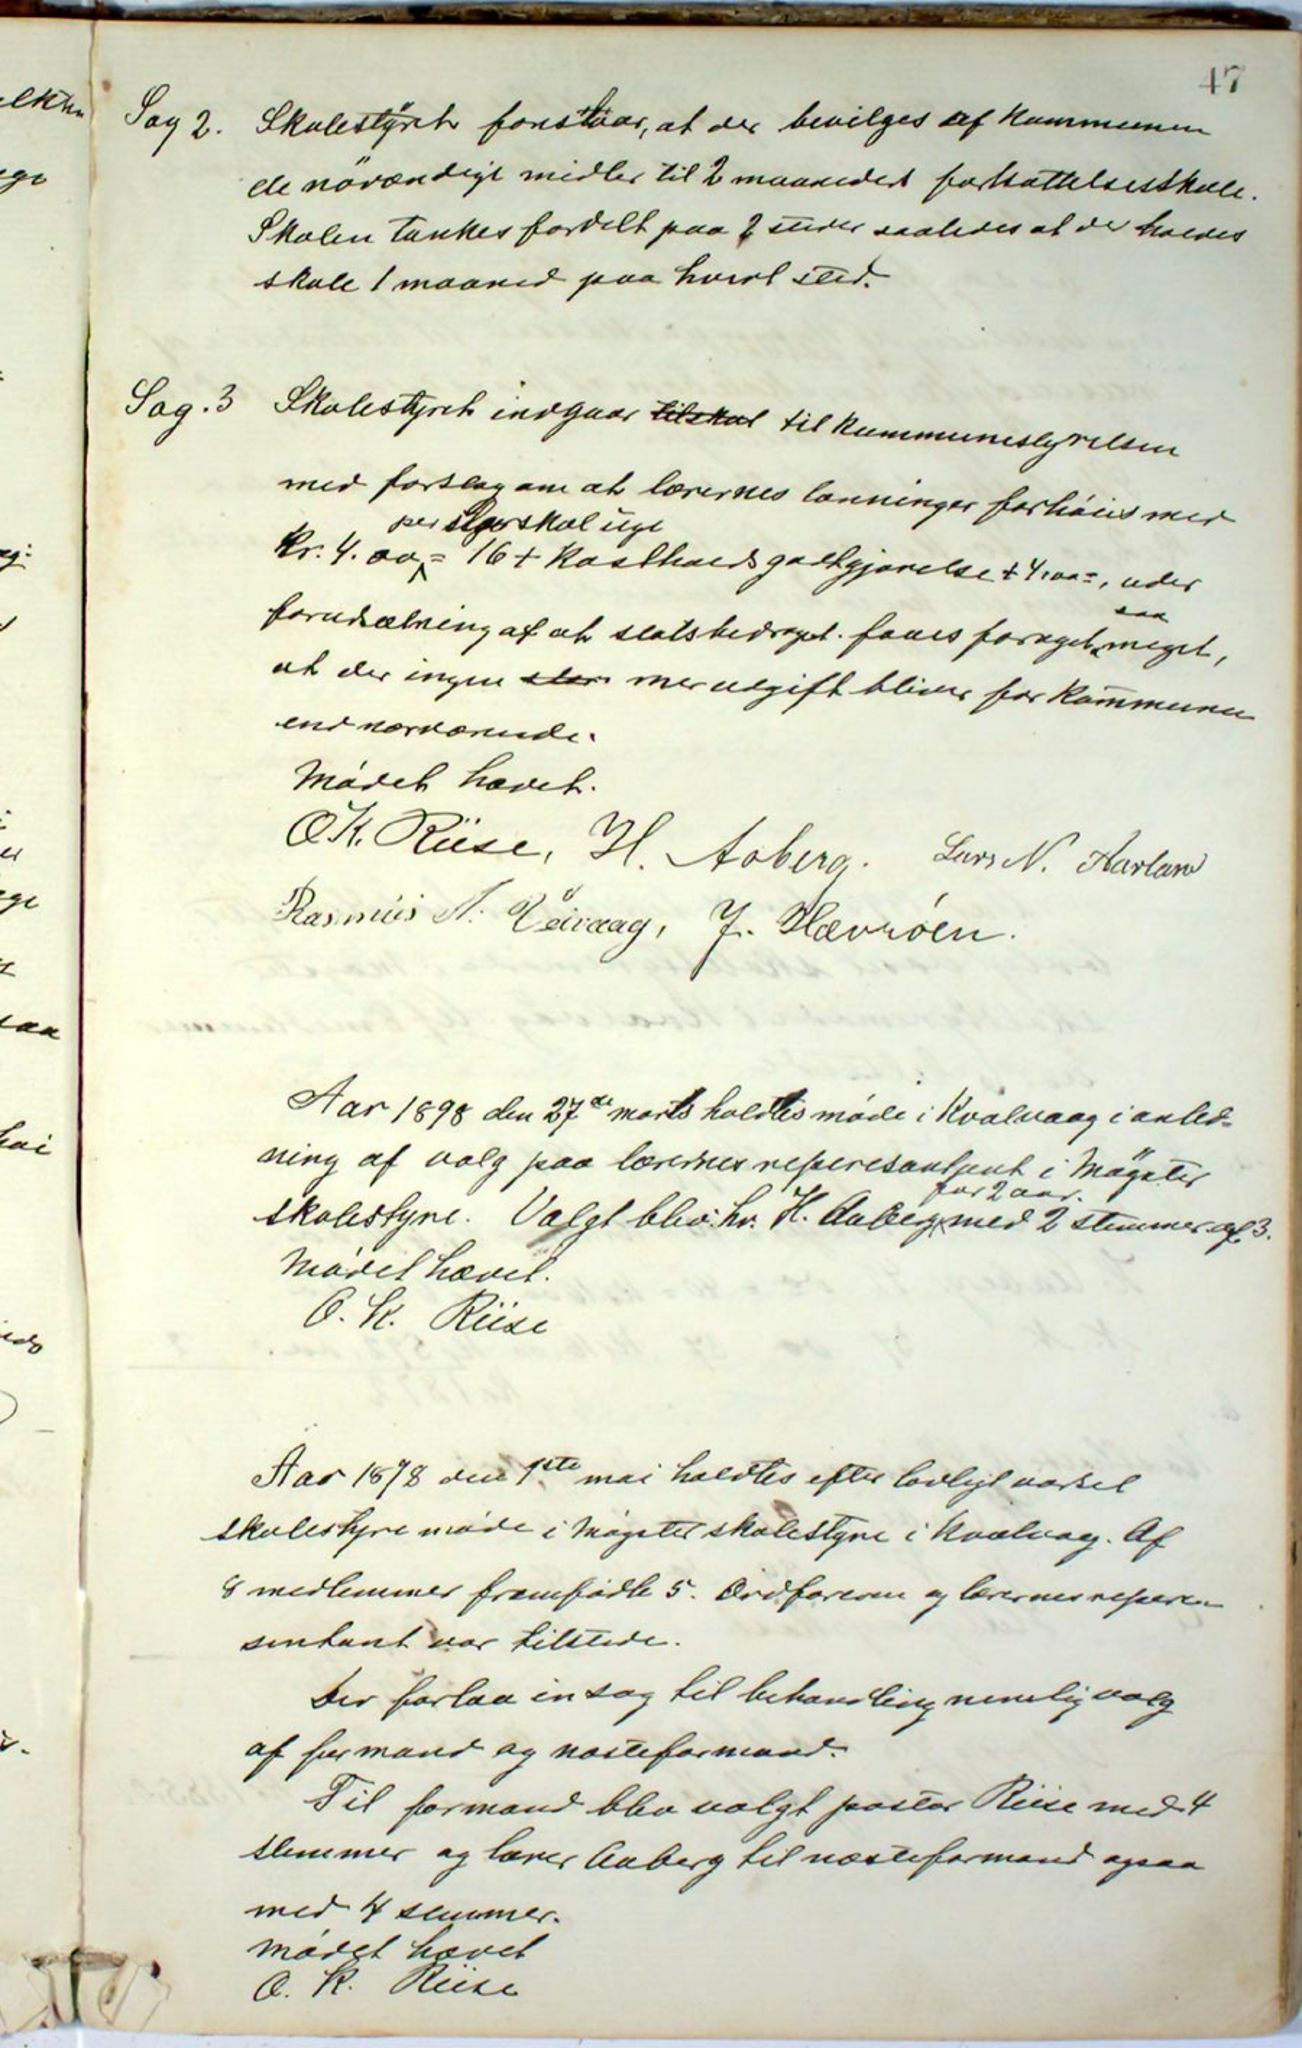 47
Sag 2. Skolestyret forestaar, at der bevilges af Kommunen
de növændige midler til 2 maaneders fortsættelsesskole.
Skolen tænkes fordelt paa 2 steder saaledes at der holdes
skole 1 maaned paa hvert sted.
Sag. 3 Skolestyret indgaar tilskol til Kommunestyrelsen
med forslag om at lærernes lønninger forhöies med
per skoluge
Kr. 4.00 = 16 + Kostholdsgodtgjørelse + 4,00 =, under
forudsætning af at statsbedraget faaes foröget saa meget,
at der ingen stor merudgift bliver for Kommunen
end nærværende.
Mödet hævet.
O.K. Riise, H. Aaberg. Lars N. Aarland
Rasmus N. Veivaag, J. Hævröen.
Aar 1898 den 27de marts holdtes möde i Kvalvaag i anled-
ning af valg paa lærernes represantant i Mögster
for 2 aar.
skolestyre. Valgt blev: hr. H. Aaberg med 2 stemmer af 3.
Mödet hævet.
O. K. Riise
Aar 1898 den 1ste mai holdtes efter lovligt varsel
skolestyremöde i Mögster skolestyre i Kvalvag. Af
8 medlemmer fremmödte 5. Ordföreren og lærernes repere-
sentant var tilstede.
Der forlaa en sag til behandling nemlig valg
af formand og næsteformand.
Til formand blev valgt pastor Riise med 4
stemmer og lærer Aaberg til næsteformand ogsaa
med 4 stemmer.
mödet hævet
O. K. Riise